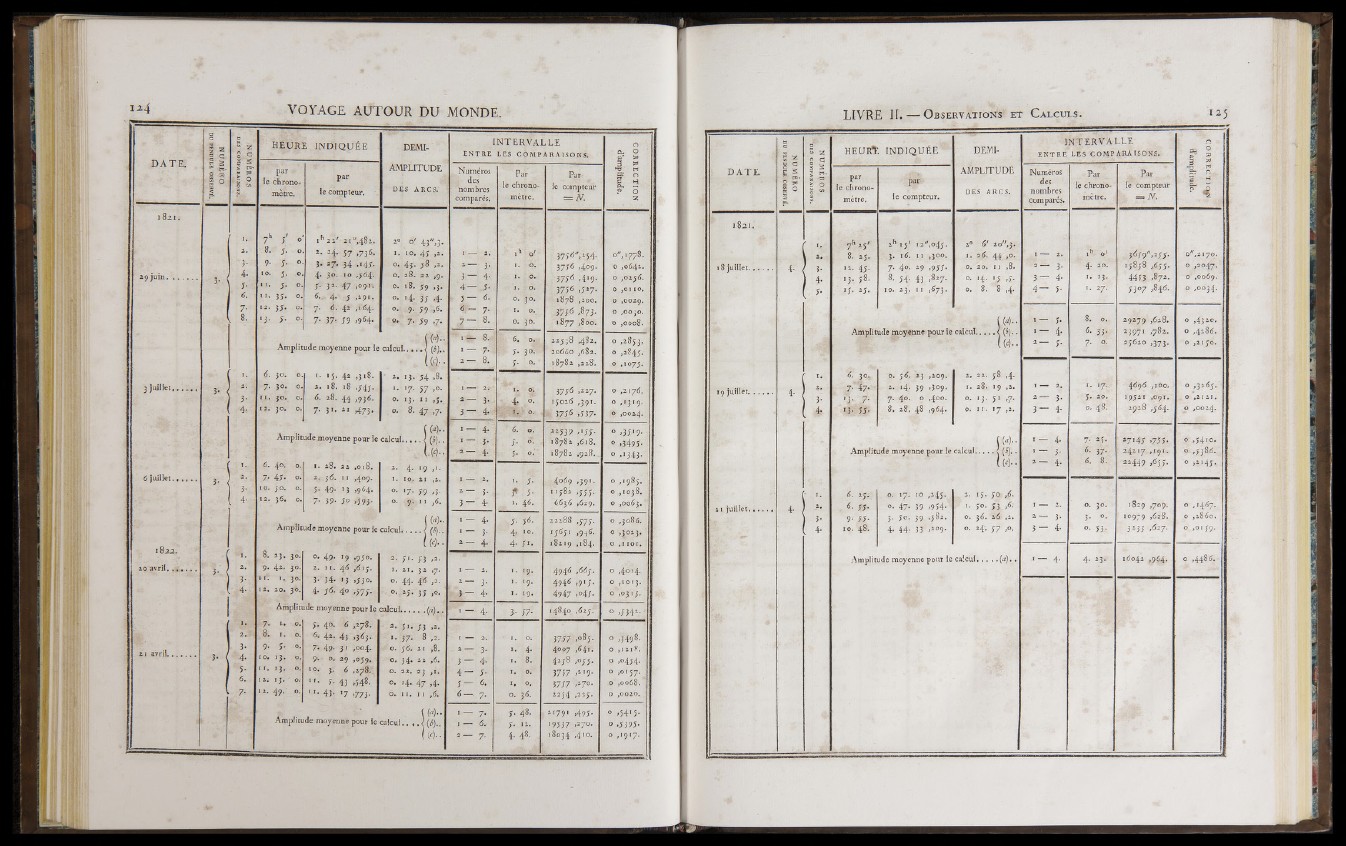 124 VOYAGE AUTOUR DU MONDE.
DATE. NUMÉRO DU PENDULE OBSERVÉ. NUMÉROS DES COMPARAISONS. HEURE INDIQUÉE DEMI-AMPLITUDE DES ARCS. INTERVALLE ENTRE LES COMPARAISONS. CORRECTION d'amplitude.
par le chronomètre. par le compteur. Numéros des nombres comparés. Par le chronomètre. Par le compteur = N.
1821.
29 juin. 3.
1. 7h 5' 0" 1h 22' 21",482. 2° 6' 43",3.
2. 8. 5. 0. 2. 24. 57 ,736. 1. 10. 45 ,2. 1 — 2. 1h 0' 3756",254. 0",1778.
3. 9. 5. 0. 3. 27. 34 ,145. 0. 43. 58 ,2. 2 — 3. 1. 0. 3756 ,409. 0 ,0642.
4. 10. 5. 0. 4. 30. 10 ,564. 0. 28. 22 ,9. 3 — 4. 1. 0. 3756 ,419. 0 ,0256.
5. 11. 5. 0. 5. 32. 47 ,091. 0. 18. 59 ,3. 4 — 5. 1. 0. 3756 ,527. 0 ,0110.
6. 11. 35. 0. 6. 4. 5 ,291. 0. 14. 35 ,4. 5 — 6. 0. 30. 1878 ,200. 0 ,0029.
7. 12. 35. 0. 7. 6. 42 ,164. 0. 9. 59 ,6. 6 — 7. 1. 0. 3756 ,873. 0 ,0030.
8. 13. 5. 0. 7. 37. 59 ,964. 0. 7. 59 ,7. 7 — 8. 0. 30. 1877 ,800. 0 ,0008.
Amplitude moyenne pour le calcul.....
(a).. 1 — 8. 6. 0. 22538 ,482. 0 ,2853.
(b).. 1 — 7. 5. 30. 20660 ,682. 0 ,2845.
(c).. 2 — 8. 5. 0. 18782 ,228. 0 ,1075.
3 juillet...... 3.
1. 6. 30. 0. 1. 15. 42 ,318. 2. 13. 54 ,8.
2. 7. 30. 0. 2. 18. 18 ,545. 1. 17. 57 ,0. 1 — 2. 1. 0. 3756 ,227. 0 ,2176.
3. 11. 30. 0. 6. 28. 44 ,936. 0. 13. 11 ,5. 2 — 3. 4. 0. 15026 ,391. 0 ,1319.
4. 12. 30. 0. 7. 31. 21 ,473. 0. 8. 47 ,7. 3 — 4. 1. 0. 3756 ,537. 0 ,0024.
Amplitude moyenne pour le calcul.....
(a).. 1 — 4. 6. 0. 22539 ,155. 0 ,3519.
(b).. 1 — 3. 5. 0. 18782 ,618. 0 ,3495.
(c).. 2 — 4. 5. 0. 18782 ,928. 0 ,1343.
6 juillet...... 3.
1. 6. 40. 0. 1. 28. 22 ,018. 2. 4. 19 ,1.
2. 7. 45. 0. 2. 36. 11 ,409. 1. 10. 21 ,2. 1 — 2. 1. 5. 4069 ,391. 0 ,1985.
3. 10. 50. 0. 5. 49. 13 ,964. 0. 17. 59 ,3. 2 — 3. 3. 5. 11582 ,555. 0 ,1038.
4. 12. 36. 0. 7. 39. 50 ,593. 0. 9. 11 ,6. 3 — 4. 1. 46. 6636 ,629. 0 ,0063.
Amplitude moyenne pour le calcul.....
(a).. 1 — 4. 5. 56. 22288 ,575. 0 ,3086.
(b).. 1 — 3. 4. 10. 15651 ,946. 0 ,3023.
(c).. 2 — 4. 4. 51. 18219 ,184. 0 ,1101.
1822.
20 avril....... 3.
1. 8. 23. 30. 0. 49. 19 ,950. 2. 51. 53 ,2.
2. 9. 42. 30. 2. 11. 46 ,615. 1. 21. 32 ,7. 1 — 2. 1. 19. 4946 ,665. 0 ,4014.
3. 11. 1. 30. 3. 34. 13 ,530. 0. 44. 46 ,2. 2 — 3. 1. 19. 4946 ,915. 0 ,1013.
4. 12. 20. 30. 4. 56. 40 ,575. 0. 25. 35 ,0. 3 — 4. 1. 19. 4947 ,045. 0 ,0315.
Amplitude moyenne pour le calcul......(a).. 1 — 4. 3. 57. 14840 ,625. 0 ,5342.
21 avril....... 3.
1. 7. 1. 0. 5. 40. 6 ,278. 2. 51. 53 ,2.
2. 8. 1. 0. 6. 42. 43 ,363. 1. 37. 8 ,2. 1 — 2. 1. 0. 3757 ,085. 0 ,3498.
3. 9. 5. 0. 7. 49. 31 ,004. 0. 56. 21 ,8. 2 — 3. 1. 4. 4007 ,641. 0 ,1218.
4. 10. 13. 0. 9. 0. 29 ,059. 0. 34. 22 ,6. 3 — 4. 1. 8. 4258 ,055. 0 ,0434.
5. 11. 13. 0. 10. 3. 6 ,278. 0. 22. 23 ,1. 4 — 5. 1. 0. 3757 ,219. 0 ,0157.
6. 12. 13. 0. 11. 5. 43 ,548. 0. 14. 47 ,4. 5 — 6. 1. 0. 3757 ,270. 0 ,0068.
7. 12. 49. 0. 11. 43. 17 ,773. 0. 11. 11 ,6. 6 — 7. 0. 36. 2254 ,225. 0 ,0020.
Amplitude moyenne pour le calcul.....
(a).. 1 — 7. 5. 48. 21791 ,495. 0 ,5415.
(b).. 1 — 6. 5. 12. 19537 ,270. 0 ,5395.
(c).. 2 — 7. 4. 48. 18034 ,410. 0 ,1917.
LIVRE II. — OBSERVATIONS ET CALCULS. 125
DATE. NUMÉRO DU PENDULE OBSERVÉ. NUMÉROS DES COMPARAISONS. HEURE INDIQUÉE DEMI-AMPLITUDE DES ARCS. INTERVALLE ENTRE LES COMPARAISONS. CORRECTION d'amplitude.
par le chronomètre. par le compteur. Numéros des nombres comparés. Par le chronomètre. Par le compteur = N.
1821.
18 juillet...... 4.
1. 7h 25' 2h 15' 12",045. 2° 6' 20",3.
2. 8. 25. 3. 16. 11 ,300. 1. 26. 44 ,0. 1 — 2. 1h 0' 3659",255. 0",2170.
3. 12. 45. 7. 40. 29 ,955. 0. 20. 11 ,8. 2 — 3. 4. 20. 15858 ,655. 0 ,2047.
4. 13. 58. 8. 54. 43 ,827. 0. 14. 15 ,5. 3 — 4. 1. 13. 4453 ,872. 0 ,0069.
5. 15. 25. 10. 23. 11 ,673. 0. 8. 8 ,4. 4 — 5. 1. 27. 5307 ,846. 0 ,0034.
Amplitude moyenne pour le calcul.....
(a).. 1 — 5. 8. 0. 29279 ,628. 0 ,4320.
(b).. 1 — 4. 6. 33. 23971 ,782. 0 ,4286.
(c).. 2 — 5. 7. 0. 25620 ,373. 0 ,2150.
19 juillet...... 4.
1. 6. 30. 0. 56. 23 ,209. 2. 22. 58 ,4.
2. 7. 47. 2. 14. 39 ,309. 1. 28. 19 ,2. 1 — 2. 1. 17. 4696 ,100. 0 ,3165.
3. 13. 7. 7. 40. 0 ,400. 0. 13. 51 ,7. 2 — 3. 5. 20. 19521 ,091. 0 ,2121.
4. 13. 55. 8. 28. 48 ,964. 0. 11. 17 ,2. 3 — 4. 0. 48. 2928 ,564. 0 ,0024.
Amplitude moyenne pour le calcul.....
(a).. 1 — 4. 7. 25. 27145 ,755. 0 ,5410.
(b).. 1 — 3. 6. 37. 24217 ,191. 0 ,5386.
(c).. 2 — 4. 6. 8. 22449 ,655. 0 ,2145.
21 juillet...... 4.
1. 6. 25. 0. 17. 10 ,245. 2. 15. 50 ,6.
2. 6. 55. 0. 47. 39 ,954. 1. 50. 53 ,6. 1 — 2. 0. 30. 1829 ,709. 0 ,1467.
3. 9. 55. 3. 50. 39 ,582. 0. 36. 26 ,2. 2 — 3. 3. 0. 10979 ,628. 0 ,2860.
4. 10. 48. 4. 44. 33 ,209. 0. 24. 57 ,0. 3 — 4. 0. 53. 3233 ,627. 0 ,0159.
Amplitude moyenne pour le calcul.....(a).. 1 — 4. 4. 23. 16042 ,964. 0 ,4486.